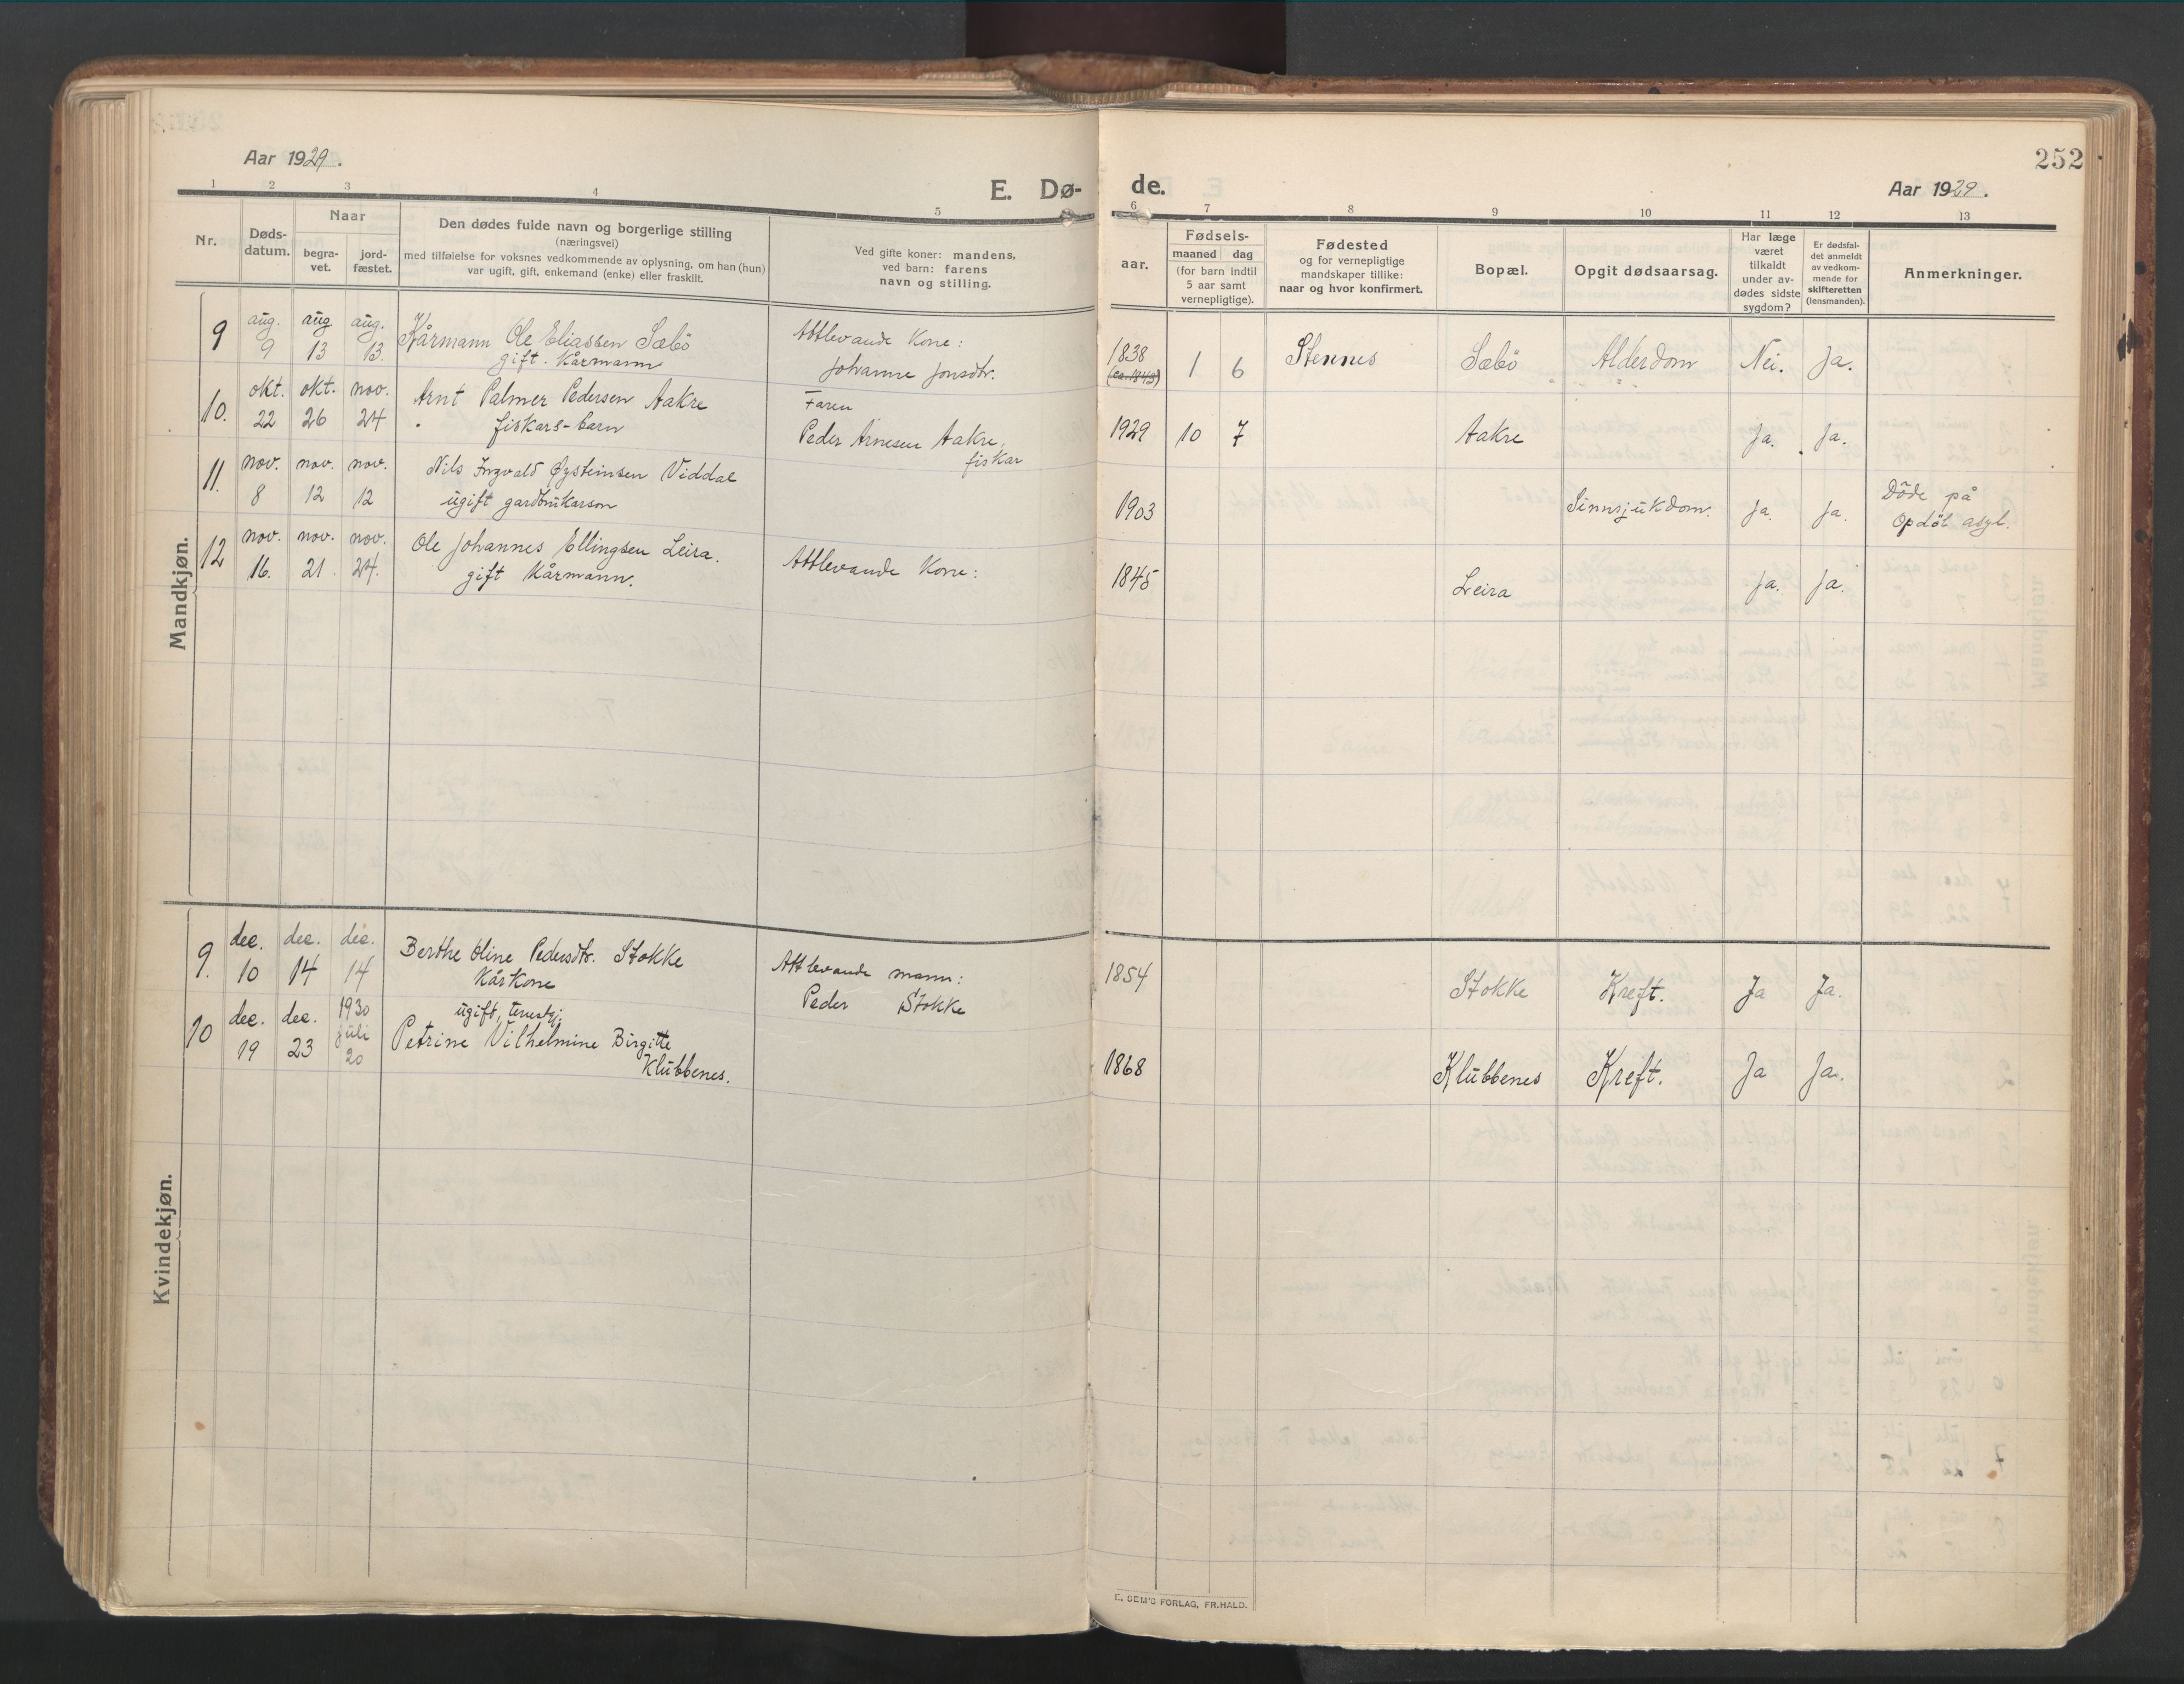 Aar 1929.
E. Dø-
1 2 3 4 5
Nr.
Døds-
datum.
Naar
begra-
vet.
jord-
fæstet.
Den dødes fulde navn og borgerlige stilling
(næringsvei)
med tilføielse for voksnes vedkommende av oplysning, om han (hun)
var ugift, gift, enkemand (enke) eller fraskilt.
Ved gifte koner: mandens,
ved barn: farens
navn og stilling.
Mandkjøn.
9 aug. aug aug. Kårmann Ole Eliassen Sæbö Attlevande Kone:
9 13 13. gift. Kårmann Johanne Jonsdtr.
10. okt. okt. nov. Arnt Palmer Pedersen Aakre Faren
22 26 24 fiskars-barn Peder Arnesen Aakre,
fiskar
11. nov. nov. nov. Nils Ingvald Øysteinsen Viddal
8 12 12 ugift gardbrukarson
12 nov. nov. nov. Ole Johannes Ellingsen Leira.
16. 21. 24. gift Kårmann. Attlevande Kone:
Kvindekjøn.
9. dec. dec. dec. Berthe Oline Pedersdtr. Stokke Attlevande mann:
10 14 14 Kårkone Peder Stokke
10 dec. dec. 1930 ugift, tenestj.
19 23 juli Petrine Vilhelmine Birgitte
20 Klubbenes.
252
de.
Aar 1929.
6 7 8 9 10 11 12 13
aar.
Fødsels-
maaned dag
(for barn indtil
5 aar samt
vernepligtige).
Fødested
og for vernepligtige
mandskaper tillike:
naar og hvor konfirmert.
Bopæl.
Opgit dødsaarsag.
Har læge
været
tilkaldt
under av-
dødes sidste
sygdom?
Er dødsfal-
det anmeldt
av vedkom-
mende for
skifteretten
(lensmanden).
Anmerkninger.
1838 1 6 Stennes Sæbö Alderdom Nei. Ja.
(ca. 1845)
1929 10 7 Aakre Ja. Ja.
1903 Sinnsjukdom. Ja. Ja. Döde på
Opdöl asyl.
1845 Leira Ja. Ja.
1854 Stokke Kreft. Ja Ja.
1868 Klubbenes Kreft. Ja Ja.
E. SEM'S FORLAG, FR.HALD.